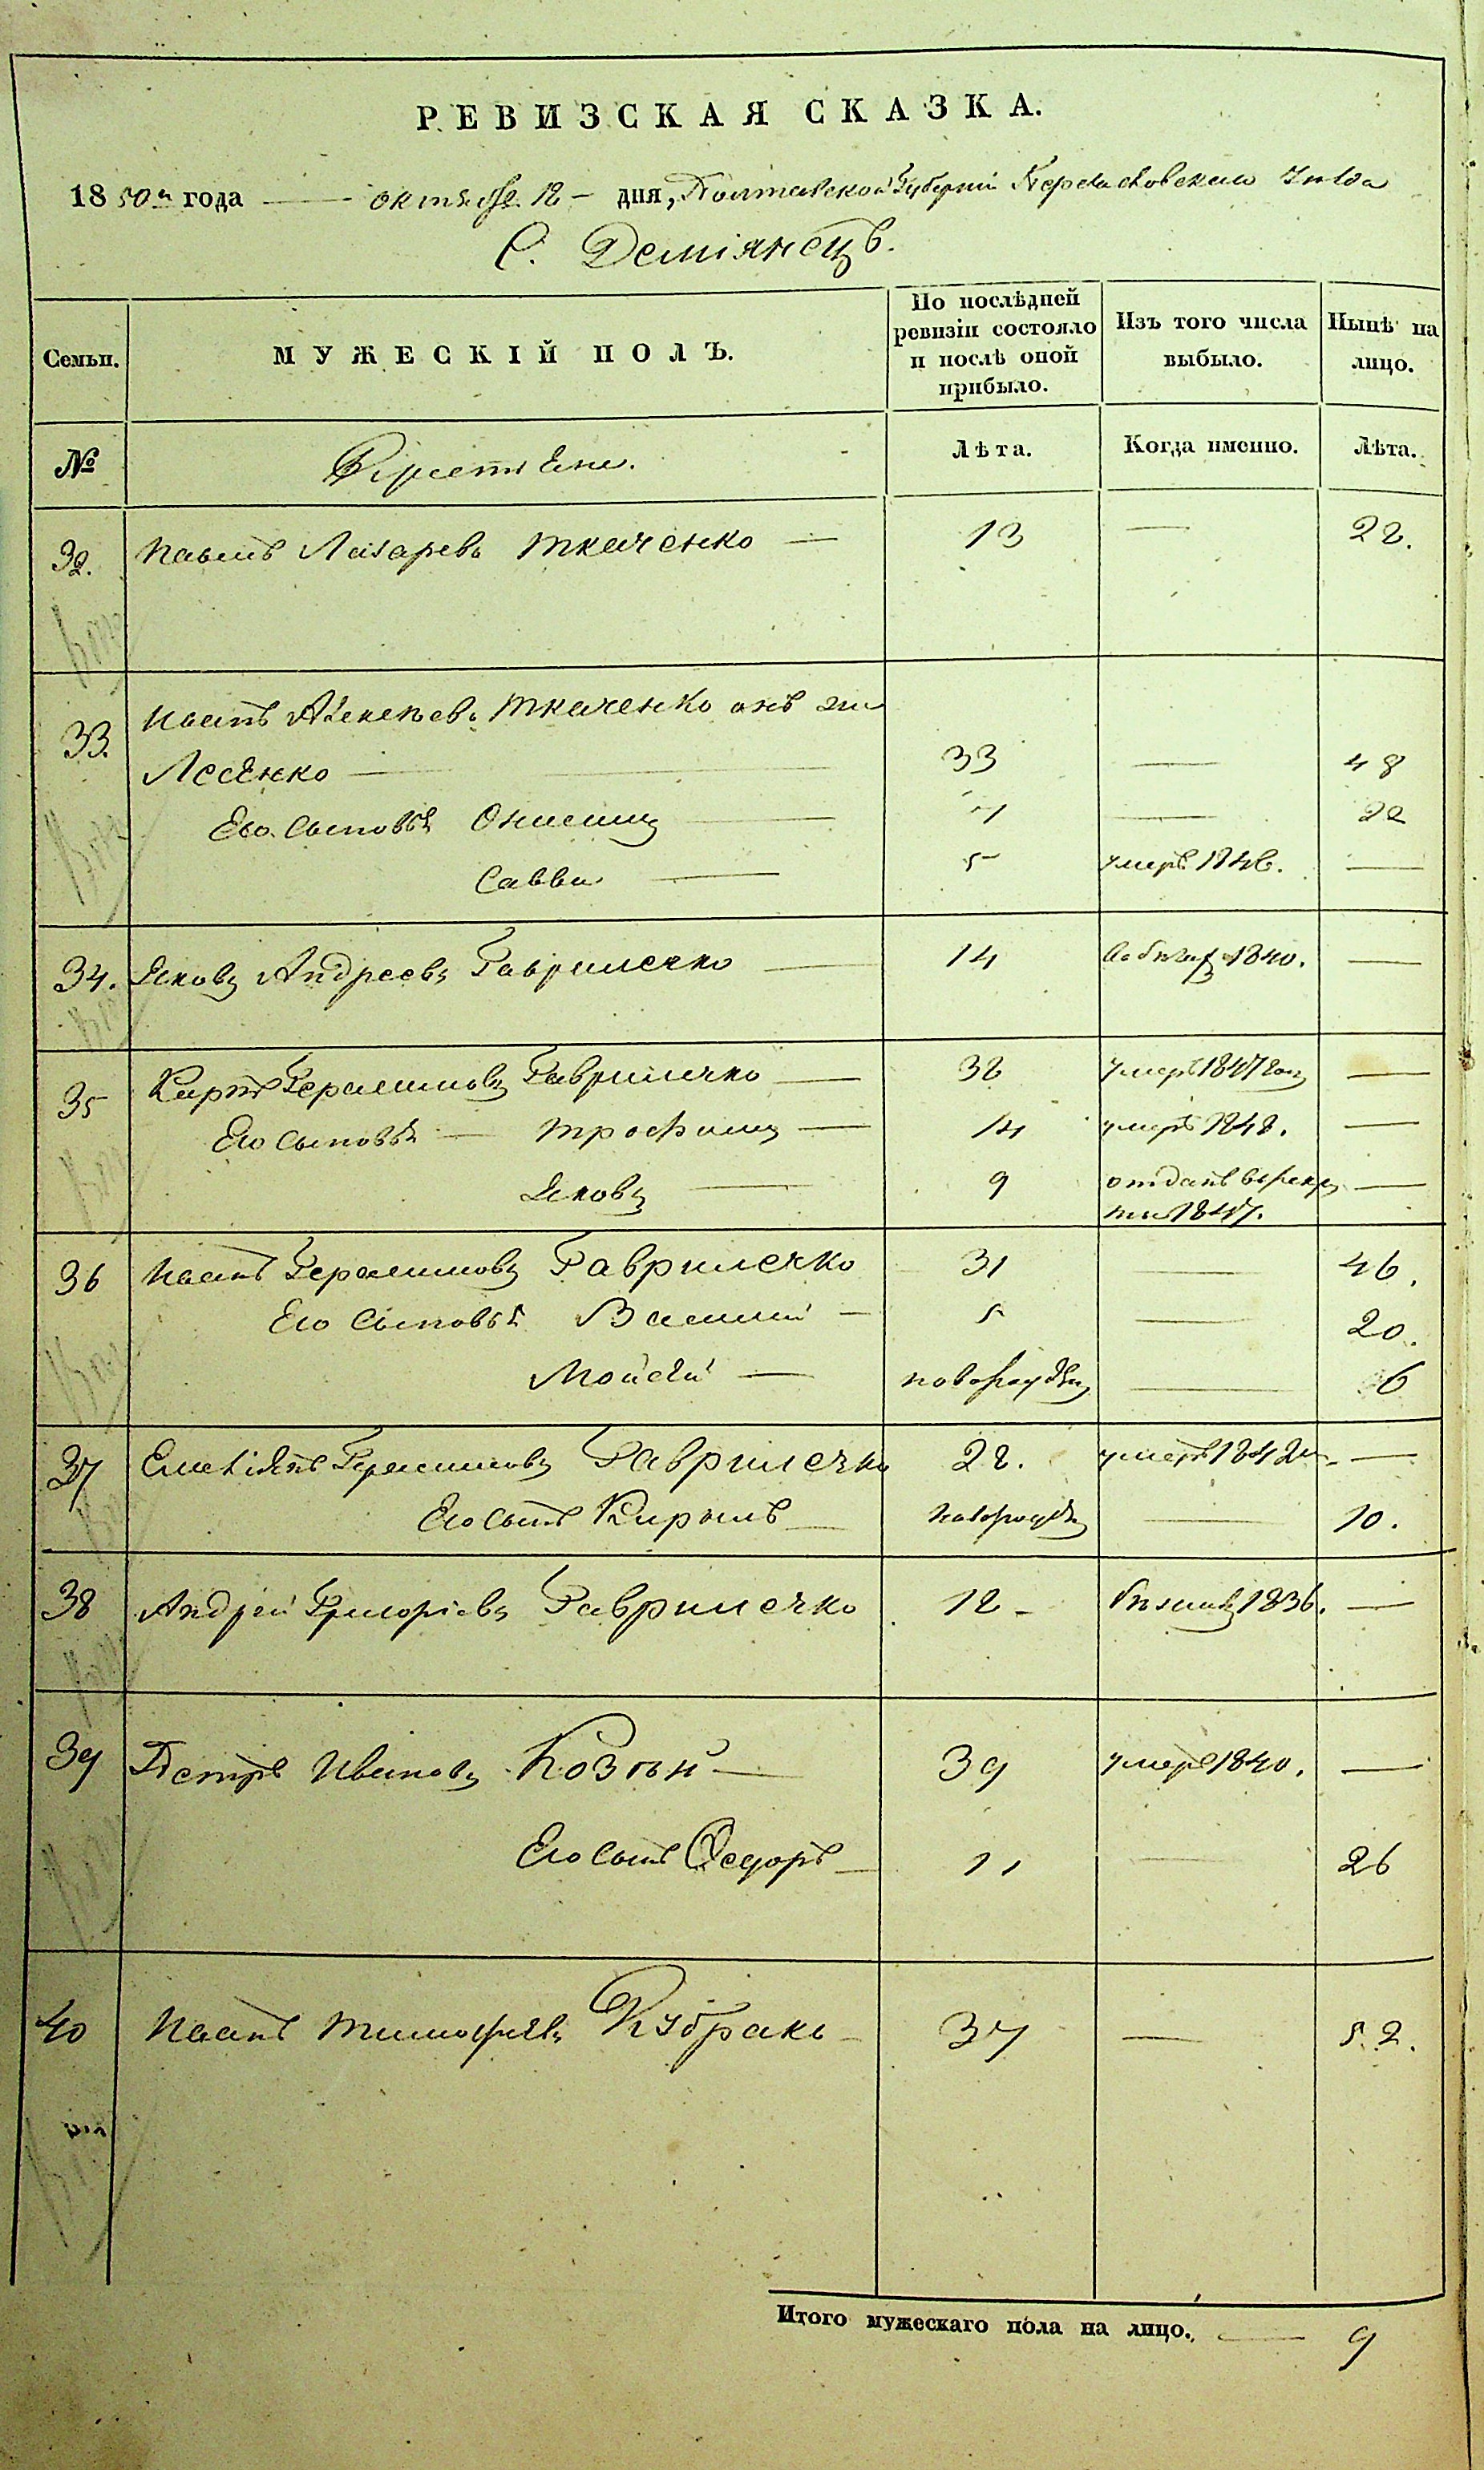 РЕВИЗСКАЯ СКАЗКА.
1850 года — октября 12 — дня, Полтавской Губерніи Переясловскаго Уезда
С. Деміянецъ.
Семьи. МУЖЕСКІЙ ПОЛЪ. По послѣдней ревизіи состояло и послѣ оной прибыло. Изъ того числа выбыло. Нынѣ на лицо.
№ Крестьяне. Лѣта. Когда именно. Лѣта.
32. Павелъ Лазаревъ Ткаченко — 13 — 28.
33. Иванъ Алексѣевъ Ткаченко онъ же
Лесенко — 33 — 48
Его сыновья Онисимъ — 7 — 22
Савва — 5 умеръ 1846. —
34. Яковъ Андреевъ Гавриленко — 14 1840. —
35 Карпъ Герасимовъ Гавриленко — 38 умеръ 1847 —
Его сыновья — Трофимъ — 14 умеръ 1848. —
Яковъ — 9 отданъ въ рекру
ты 1847. —
36 Иванъ Герасимовъ Гавриленко 31 — 46.
Его сыновья Василий — 5 — 20.
Мойсей — новорожден — 6
37 Емельянъ Герасимовъ Гавриленко 28. умеръ 1842 —
Его сынъ Кирилъ — новорожден — 10.
38 Андрей Григоріевъ Гавриленко 12 — 1836. —
39 Петръ Ивановъ Козый — 39 умеръ 1840. —
Его сынъ Федоръ — 11 — 26
40 Иванъ Тимофеевъ Кубракъ — 37 — 52.
Итого мужескаго пола на лицо. — 9